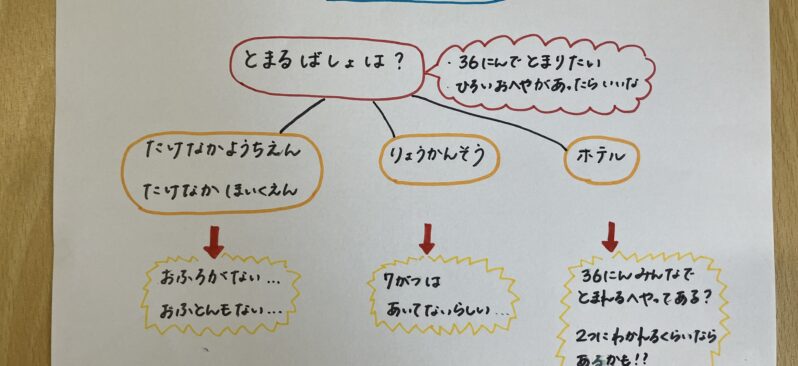 とまるばしょは？
・36にんで とまりたい
・ひろいおへやがあったらいいな
たけなかようちえん
たけなかほいくえん
りょうかんそう
ホテル
おふろがない…
おふとんもない…
7がつは
あいてないらしい…
36にんみんなで
とまれるへやってある？
2つにわかれるくらいなら
あるかも!!